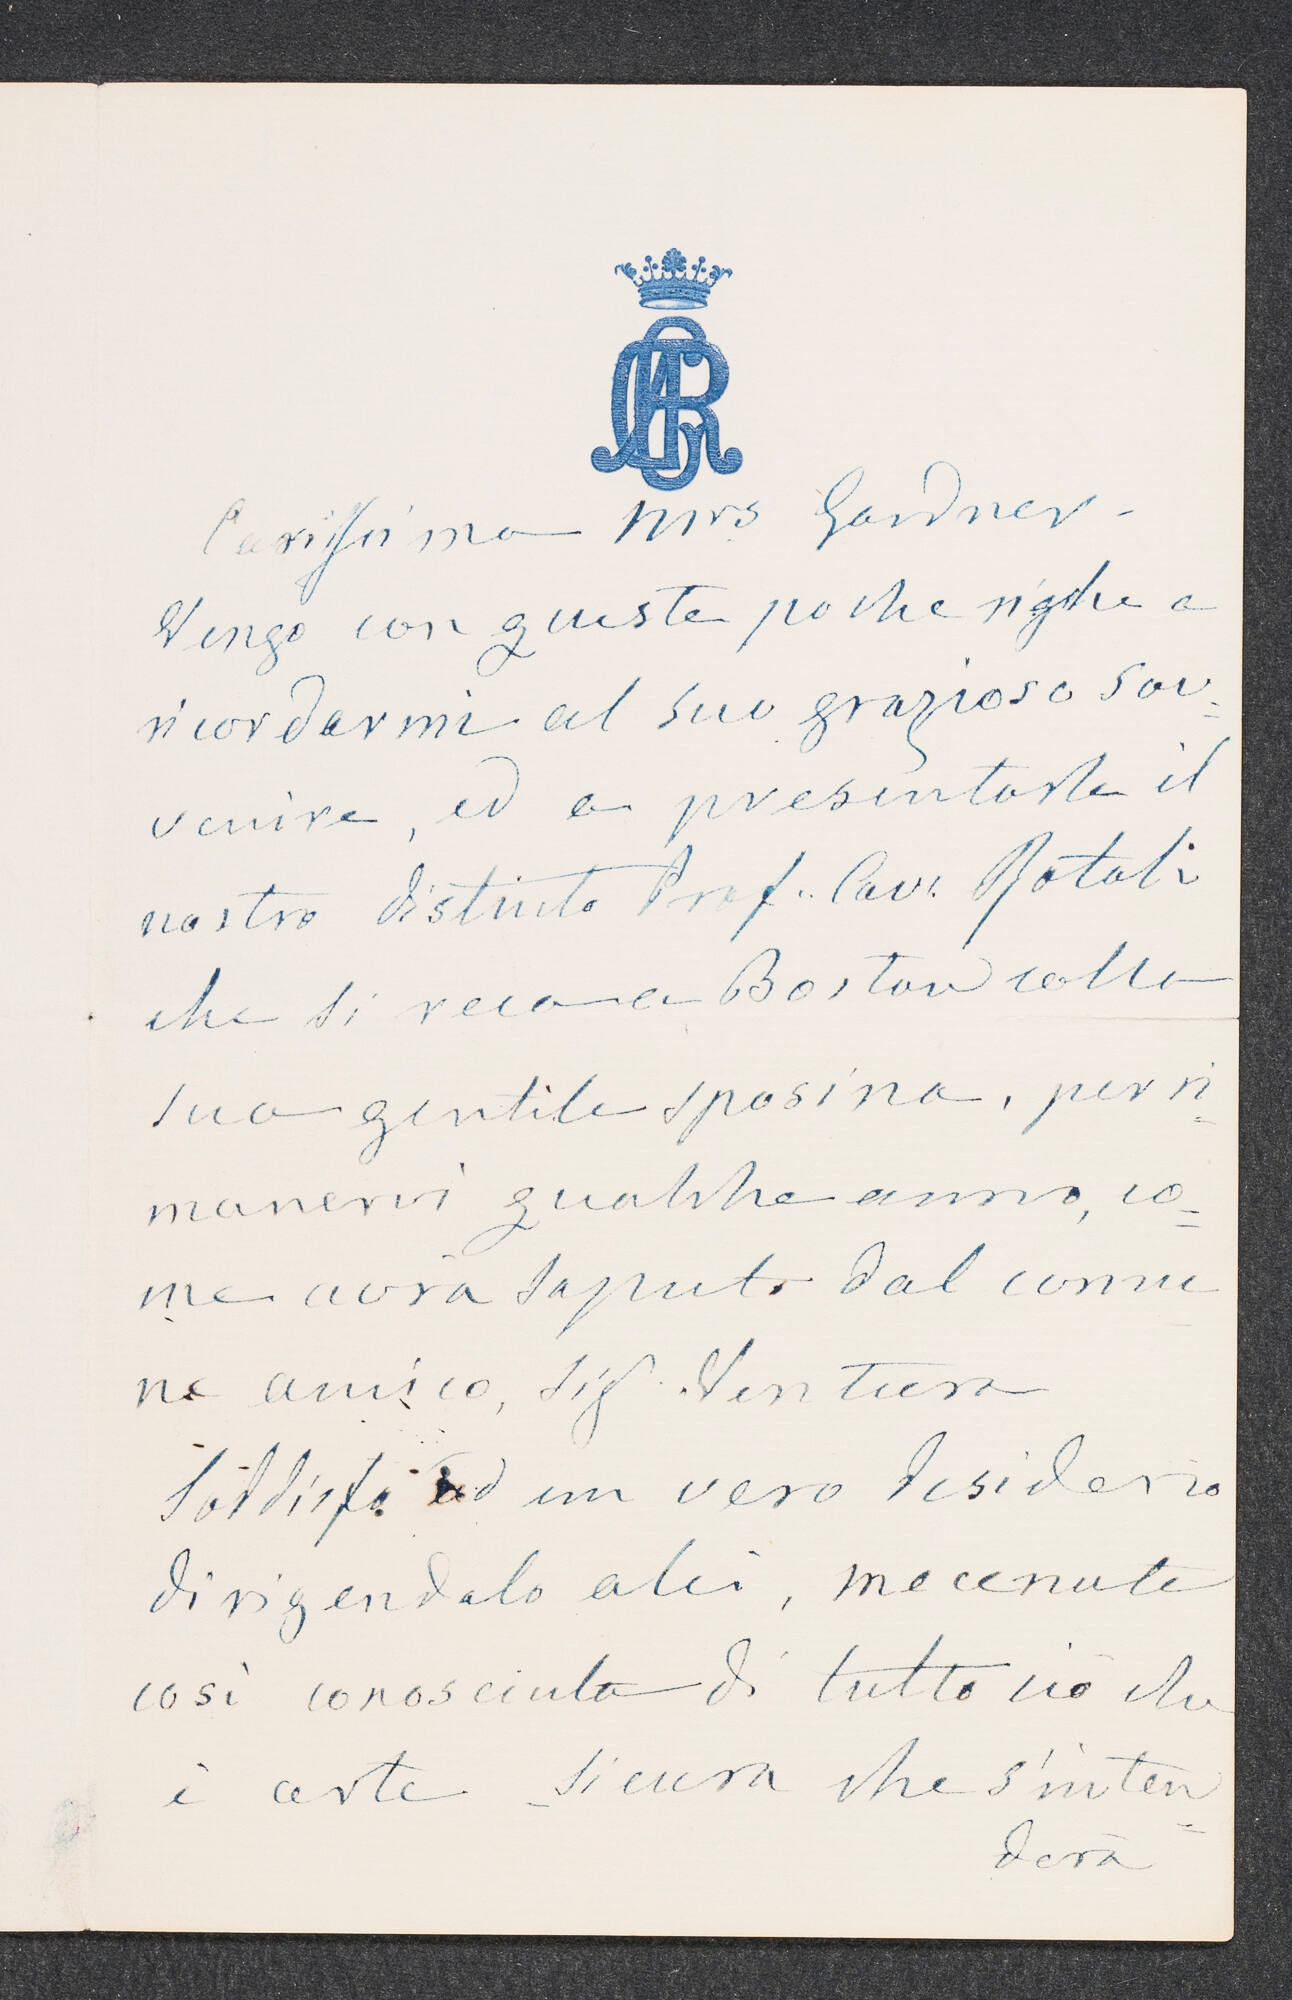 Carissima Mrs Gardner -
Vengo con queste poche righe a
ricordarmi al suo grazioso sov=
venire, ed a presentarle il
nostro distinto Prof. Cav. Rotoli
che si reca a Boston colla
sua gentile sposina, per ri=
manervi qualche anno, co=
me avrà saputo dal comu
ne amico, Sig. Ventura
Soddisfo ad un vero desiderio
dirigendolo a lei, mecenate
così conosciuta di tutto ciò che
è arte - sicura che s'inten=
derà